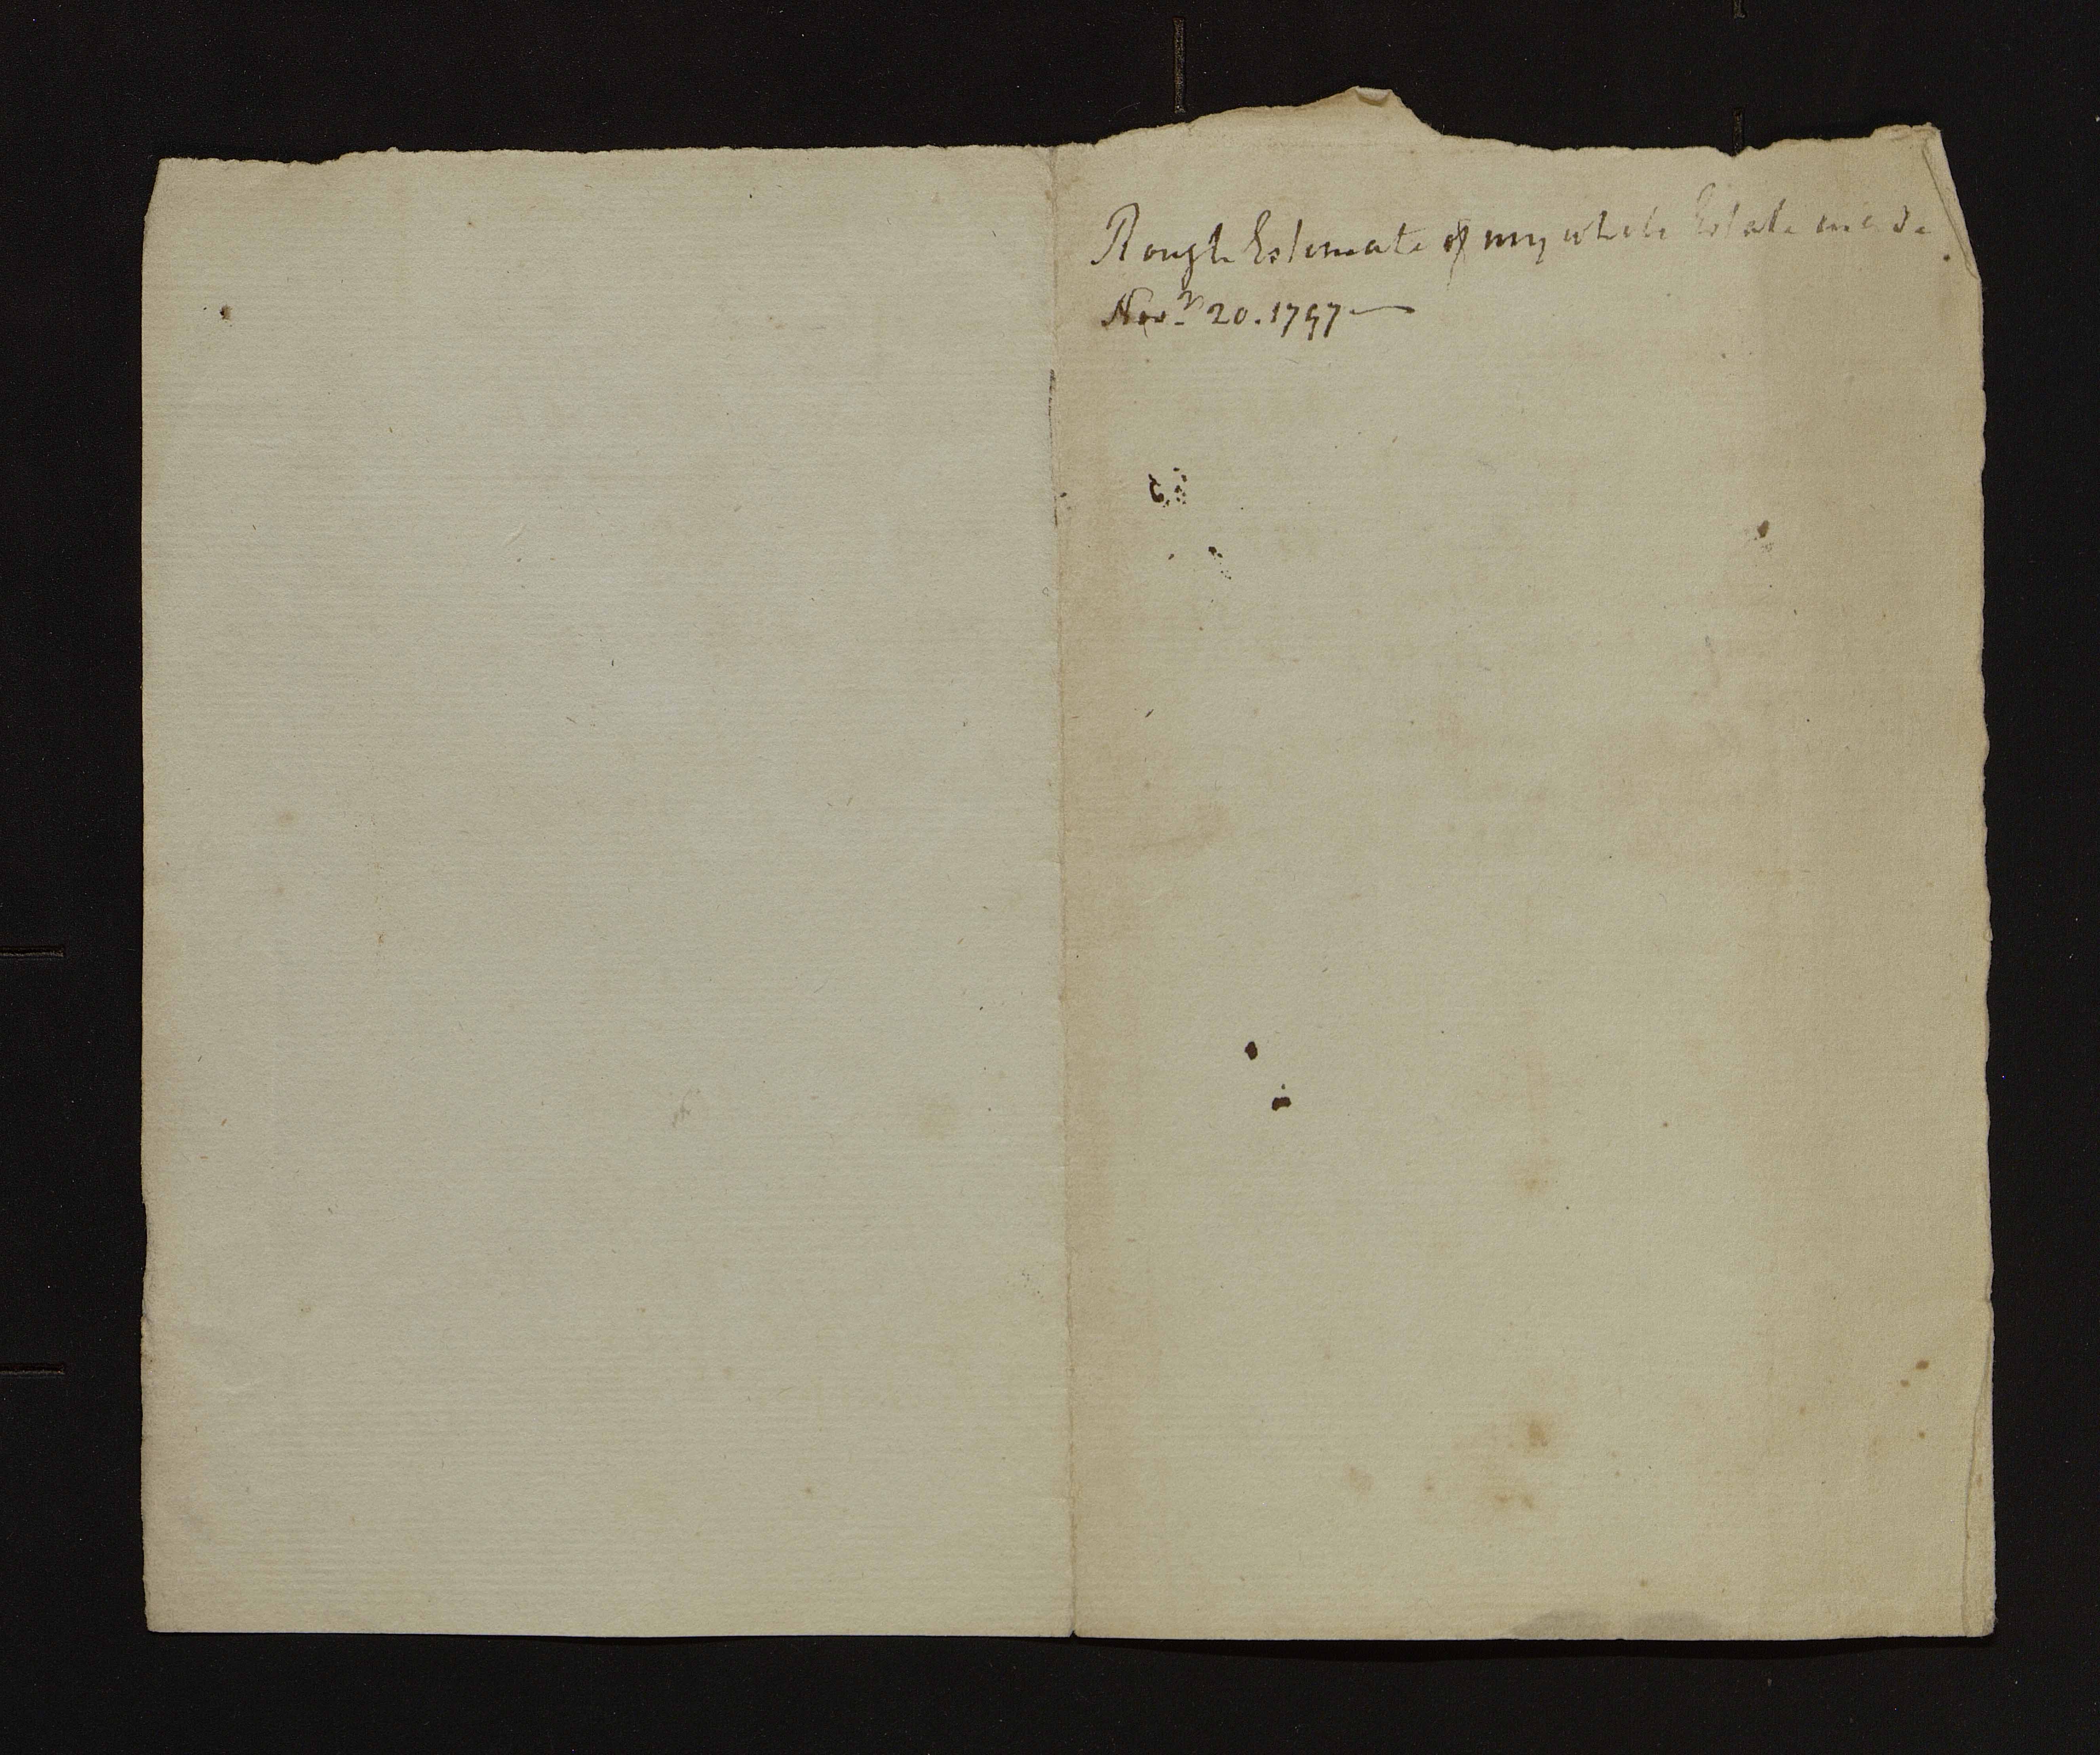 Rough Estimate of my whole Estate made
Novr 20. 1797